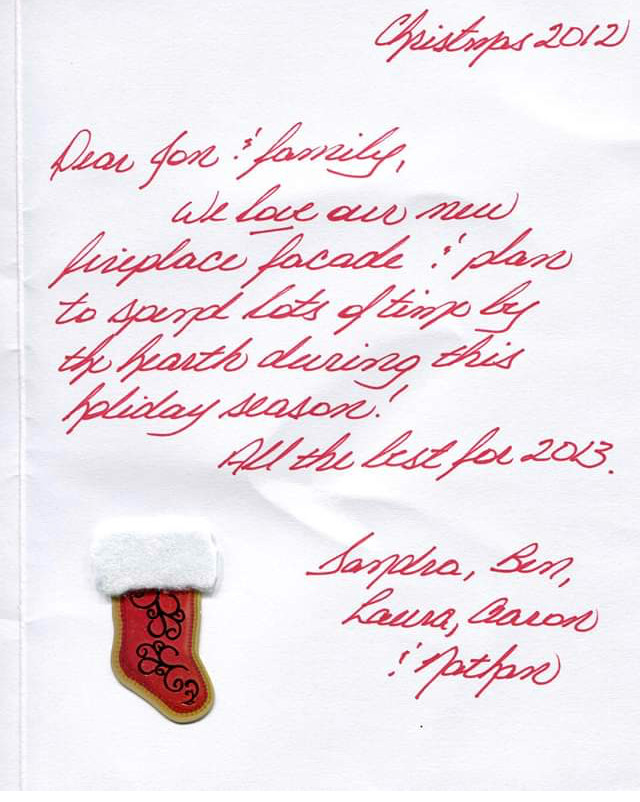 Christmas 2012
Dear Jon & family,
We love our new
fireplace facade & plan
to spend lots of time by
the hearth during this
holiday season!
All the best for 2013.
Sandra, Ben,
Laura, Aaron
& Nathan